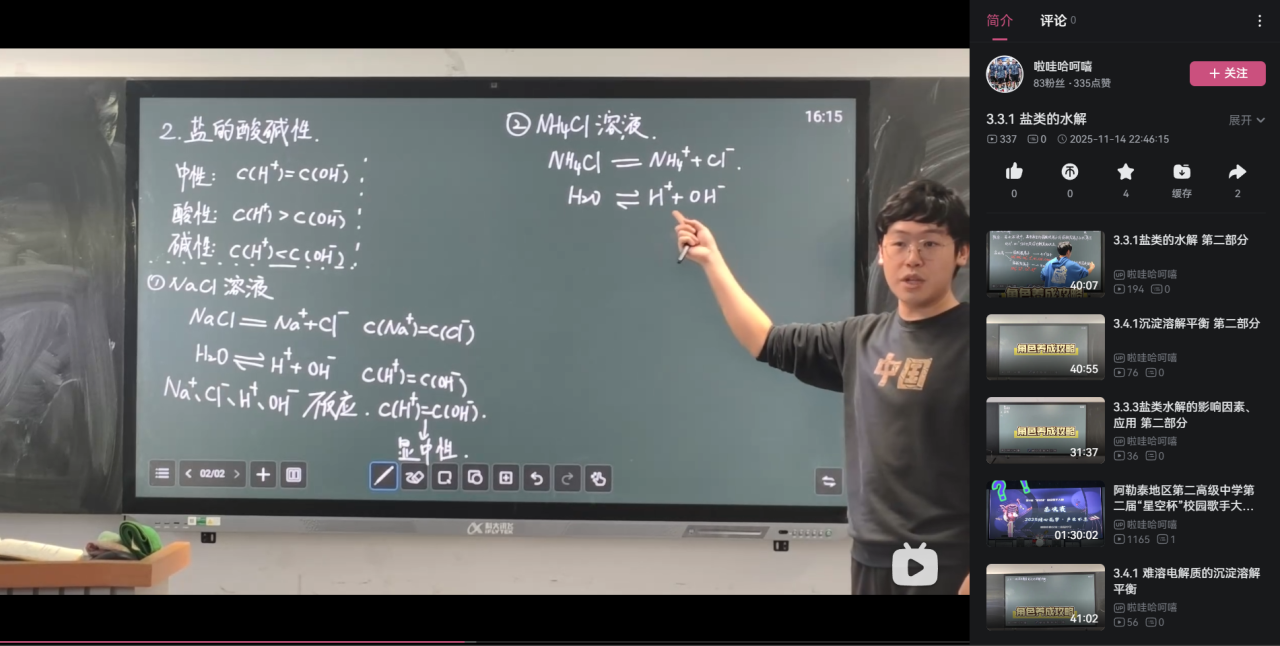 2.盐的酸碱性.
中性: C(H⁺)=C(OH⁻)
酸性: C(H⁺)>C(OH⁻)
碱性: C(H⁺)<C(OH⁻).
①NaCl溶液
NaCl=Na⁺+Cl⁻ C(Na⁺)=C(Cl⁻)
H₂O⇌H⁺+OH⁻ C(H⁺)=C(OH⁻)
Na⁺、Cl⁻、H⁺、OH⁻不反应. C(H⁺)=C(OH⁻).
↓
显中性.
②NH₄Cl溶液.
NH₄Cl=NH₄⁺+Cl⁻.
H₂O⇌H⁺+OH⁻
16:15
02/02
科大讯飞
iFLYTEK
中国
简介 评论 0
啦哇哈呵嘻
83粉丝 · 335点赞
+ 关注
3.3.1 盐类的水解
展开
337 0 2025-11-14 22:46:15
0 0 4 缓存 2
3.3.1盐类的水解 第二部分
UP啦哇哈呵嘻
194 0
40:07
角色养成攻略
3.4.1沉淀溶解平衡 第二部分
UP啦哇哈呵嘻
76 0
角色养成攻略
40:55
3.3.3盐类水解的影响因素、
应用 第二部分
UP啦哇哈呵嘻
36 0
角色养成攻略
31:37
阿勒泰地区第二高级中学第
二届“星空杯”校园歌手大...
UP啦哇哈呵嘻
1165 1
01:30:02
3.4.1 难溶电解质的沉淀溶解
平衡
UP啦哇哈呵嘻
56 0
角色养成攻略
41:02